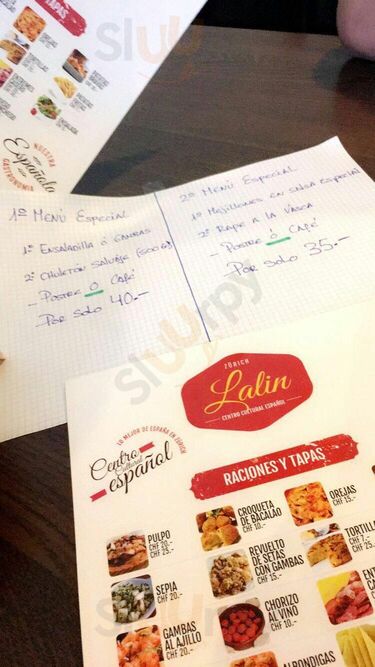 TAPAS
NUESTRA
Española
GASTRONOMIA
1º MENÚ ESPECIAL
1º ENSALADILLA Ó GAMBAS
2º CHULETÓN SALVAJE (500G)
- POSTRE Ó CAFÉ
POR SOLO 40.-
2º MENÚ ESPECIAL
1º MEJILLONES EN SALSA ESPECIAL
2º RAPE A LA VASCA
- POSTRE Ó CAFÉ
POR SOLO 35.-
ZÜRICH
Lalin
CENTRO CULTURAL ESPAÑOL
LO MEJOR DE ESPAÑA EN ZÜRICH
Centro
Cultural
español
RACIONES Y TAPAS
PULPO
CHF 20.-
CHF 25.-
SEPIA
CHF 20.-
GAMBAS
AL AJILLO
CHF 20.-
CROQUETA
DE BACALAO
CHF 10.-
REVUELTO
DE SETAS
CON GAMBAS
CHF 15.-
CHORIZO
AL VINO
CHF 10.-
OREJAS
CHF 15.-
TORTILL
CHF 7.-
CHF 25.-
Sluurpy